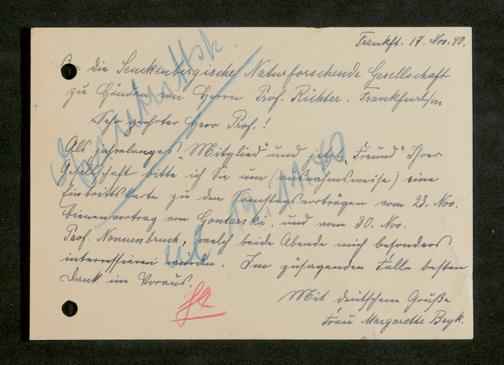 Frankft. 17. Nov. 40.
An die Senckenbergische Naturforschende Gesellschaft
zu Händen von Herrn Prof. Richter. Frankfurt/m
Sehr geehrter Herr Prof.!
Als jahrelanges "Mitglied" und jetzt "Freund" Ihrer
Gesellschaft bitte ich Sie um (ausnahmsweise) eine
Eintrittskarte zu den Samstagsvorträgen vom 23. Nov.
Bienenvortrag von Gontarski, und vom 30. Nov.
Prof. Nonnenbruch, welch beide Abende mich besonders
interressieren würden. Im zusagenden Falle besten
Dank im Voraus.
Mit deutschem Gruße
Frau Margarethe